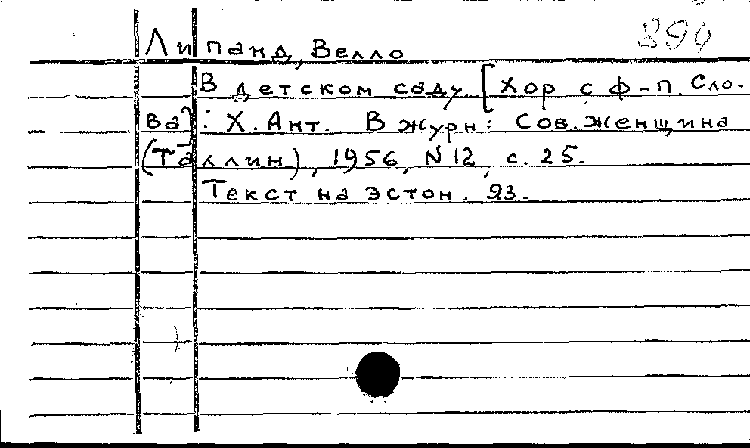 890
Липанд, Велло
В детском саду. [Хор с ф-п. Сло-
ва]: Х. Ант. В журн: Сов. женщина
(Таллин), 1956, N 12, с. 25.
Текст на эстон. яз.